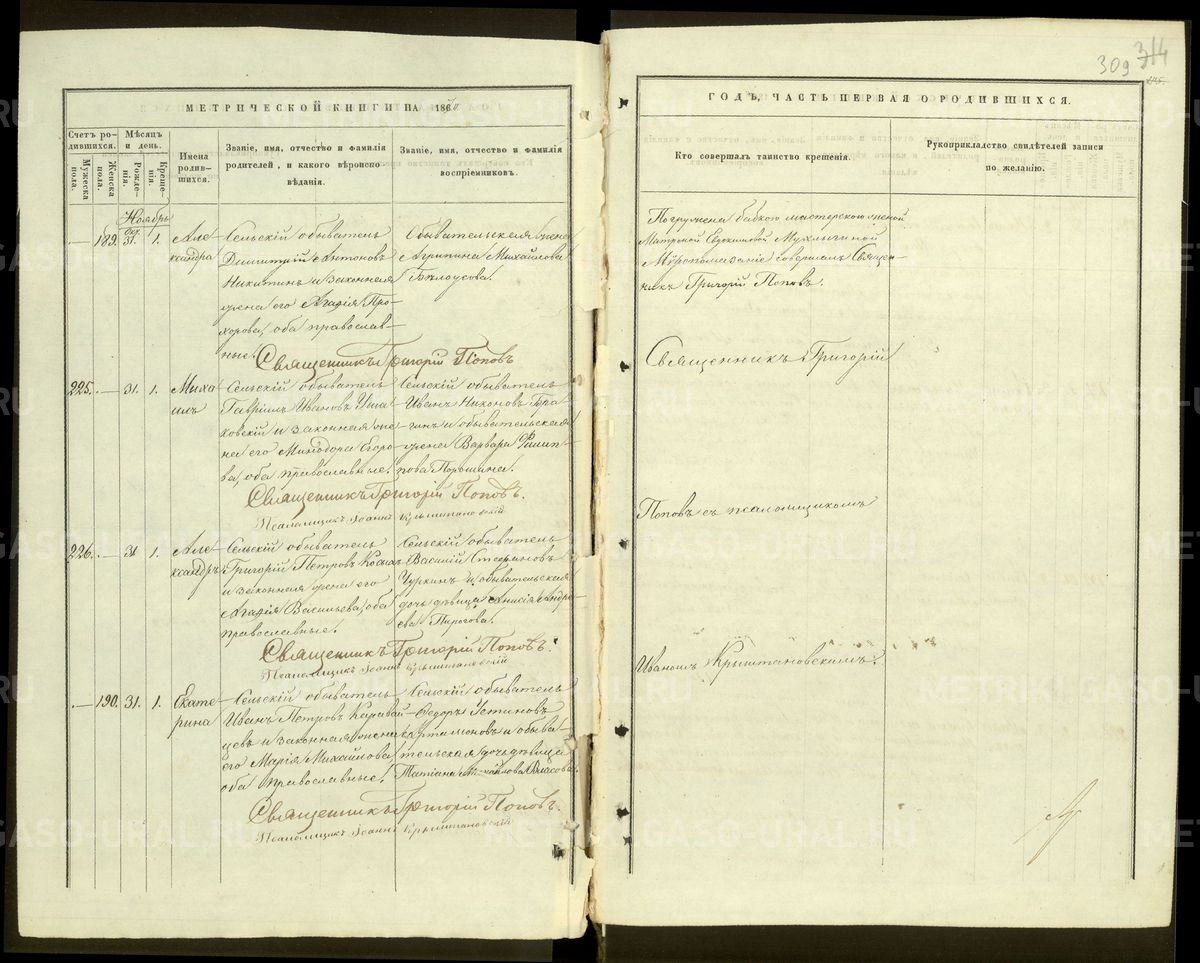 МЕТРИЧЕСКОЙ КНИГИ НА 186
Счетъ родившихся.
Мужеска пола.
Женска пола.
Мѣсяцъ и день.
Рожденія.
Крещенія.
Имена родившихся.
Званіе, имя, отчество и фамилія родителей, и какого вѣроисповѣданія.
Званіе, имя, отчество и фамилія воспріемниковъ.
Ноябрь
— 189. Окт. 31. 1.
Александра
Сельскій обыватель
Димитрій Антоновъ
Никитинъ и законная
жена его Агафія Про-
хорова, оба православ-
ные.
Обывательская жена
Агрипина Михайлова
Бѣлоусова.
Священникъ Григорій Поповъ
225. — 31. 1.
Михаилъ
Сельскій обыватель
Гавріилъ Ивановъ
ховскій и законная же-
на его Минодора Егоро-
ва, оба православные.
Сельскій обыватель
Иванъ Никоновъ Бра-
гинъ и обывательская
жена Варвара Филип-
пова Паршина.
Священникъ Григорій Поповъ.
Псаломщикъ Іоаннъ Крыштановскій
226. — 31 1.
Александръ
Сельскій обыватель
Григорій Петровъ
и законная жена его
Агафія Васильева, оба
православные.
Сельскій обыватель
Василій Стефановъ
Чуркинъ и обывательская
дочь дѣвица Анисія Андре-
ева Пирогова.
Священникъ Григорій Поповъ.
Псаломщикъ Іоаннъ Крыштановскій
— 190. 31. 1.
Екатерина
Сельскій обыватель
Иванъ Петровъ Каравай-
цевъ и законная жена
его Марія Михайлова
оба православные.
Сельскій обыватель
Ѳедоръ Устиновъ
Арталіоновъ и обыва-
тельская дочь дѣвица
Татіана Михайлова Власова.
Священникъ Григорій Поповъ.
Псаломщикъ Іоаннъ Крыштановскій
309 314
ГОДЪ, ЧАСТЬ ПЕРВАЯ О РОДИВШИХСЯ.
Кто совершалъ таинство крещенія.
Рукоприкладство свидѣтелей записи по желанію.
Погружена бабкою мастерскою женой
Матроной Евдокимовой Мухлыниной
Мѵропомазаніе совершалъ Священ-
никъ Григорій Поповъ.
Священникъ Григорій
Поповъ съ псаломщикомъ
Иваномъ Крыштановскимъ.